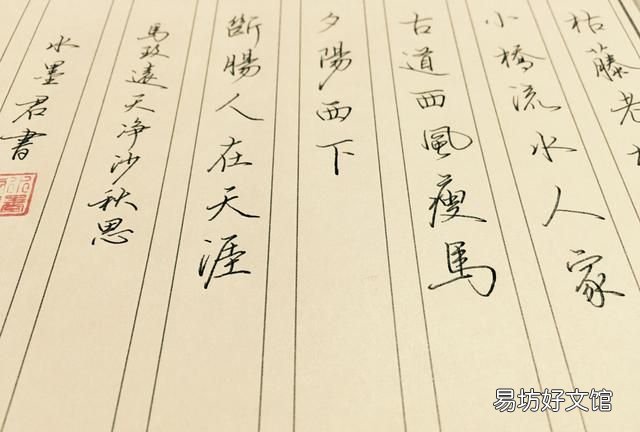 枯藤老
小橋流水人家
古道西風瘦馬
夕陽西下
斷腸人在天涯
馬致遠天净沙秋思
水墨君書
易坊好文馆